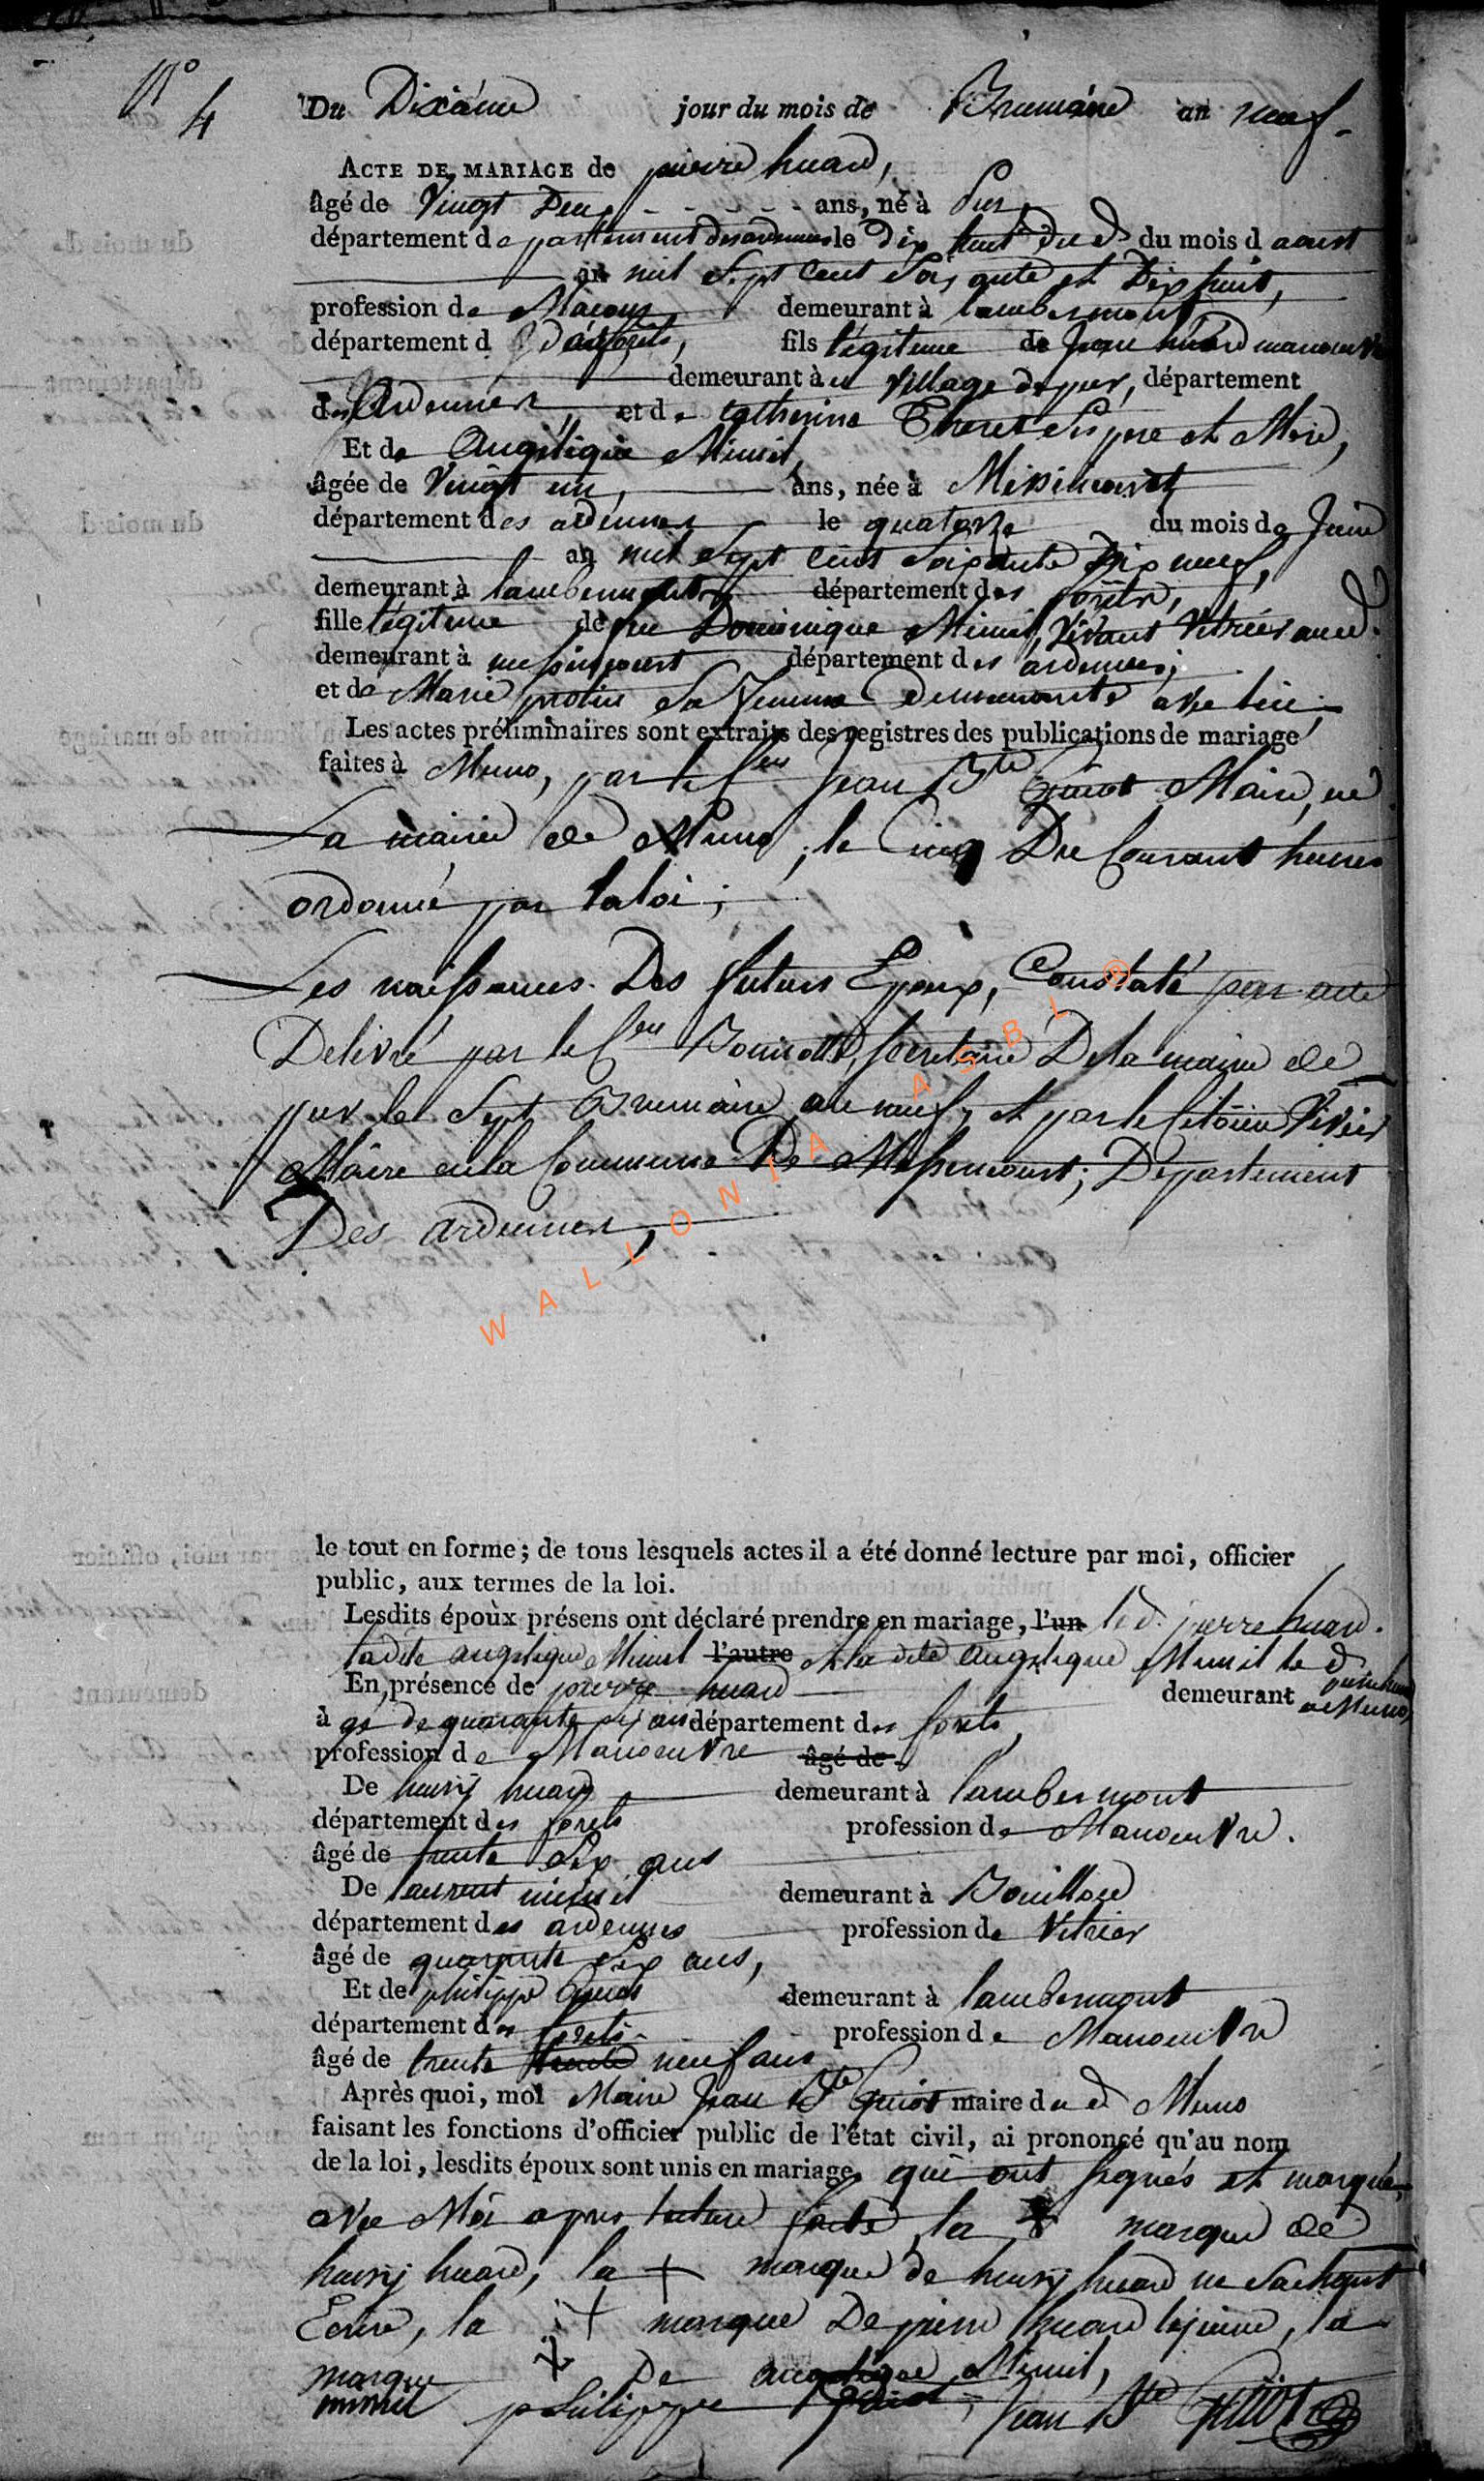 N° 4
Du Dixième jour du mois de Brumaire an neuf
ACTE DE MARIAGE de pierre huard,
âgé de Vingt Deux ans, né à pur,
département de partement des ardennes le dix huit du d. du mois d aoust
an mil Sept Cent Soixante et Dix huit,
profession de Macon demeurant à lambermont
département d forêts, fils légitime de Jean huard manoeuvre
demeurant à u village de pur, département
des Ardennes, et de catherine Ses pere et Mere,
Et de Angelique Minut,
âgée de Vingt un, ans, née à Messincourt
département des ardennes le quatorze du mois de Juin
an mil Sept cent Soixante dix neuf,
demeurant à lambermont département des forêts,
fille légitime de feu Dominique Minut, Vivant Vitrier aud.
demeurant à messincourt département des ardennes;
et de Marie protin Sa femme demeurante avec lui;
Les actes préliminaires sont extraits des registres des publications de mariage
faites à Muno, par le Cen Jean Bte Guiot Maire, en
La mairie de Muno, le Cinq Du Courant heures
ordonné par la loi;
Les naissances Des futurs Epoux, Constaté par acte
Delivré par le Cen secretaire De la mairie de
pur le Sept Brumaire an neuf, et par le Citoien Vivier
Maire en la Commune De Messincourt; Departement
Des ardennes,
WALLONIA ASBL ®
le tout en forme; de tous lesquels actes il a été donné lecture par moi, officier
public, aux termes de la loi.
Lesdits époux présens ont déclaré prendre en mariage, l'un le d. pierre huard.
ladite angelique Minut l'autre et la dite angelique Minut le d
En présence de pierre huard demeurant a Muno,
à gé de quarante six ans département des forêts,
profession de Manoeuvre âgé de
De henrij huard demeurant à lambermont
département des forêts profession de Manoeuvre.
âgé de trente Six ans
De laurent minut demeurant à Bouillon
département des ardennes profession de Vitrier
âgé de quarante Six ans,
Et de philippe Guiot demeurant à lambermont
département des forêts profession de Manoeuvre
âgé de trente neuf ans
Après quoi, moi Maire Jean Bte Guiot maire du d Muno
faisant les fonctions d'officier public de l'état civil, ai prononcé qu'au nom
de la loi, lesdits époux sont unis en mariage, qui ont signés et marqué,
avec Moi apres lecture faite, la marque de
henrij huard, la + marque de henrij huard ne Sachant
Ecrire, la + marque De pierre huard lejeune, la
marque De angelique Minut,
minut philippe Guiot, Jean Bte Guiot